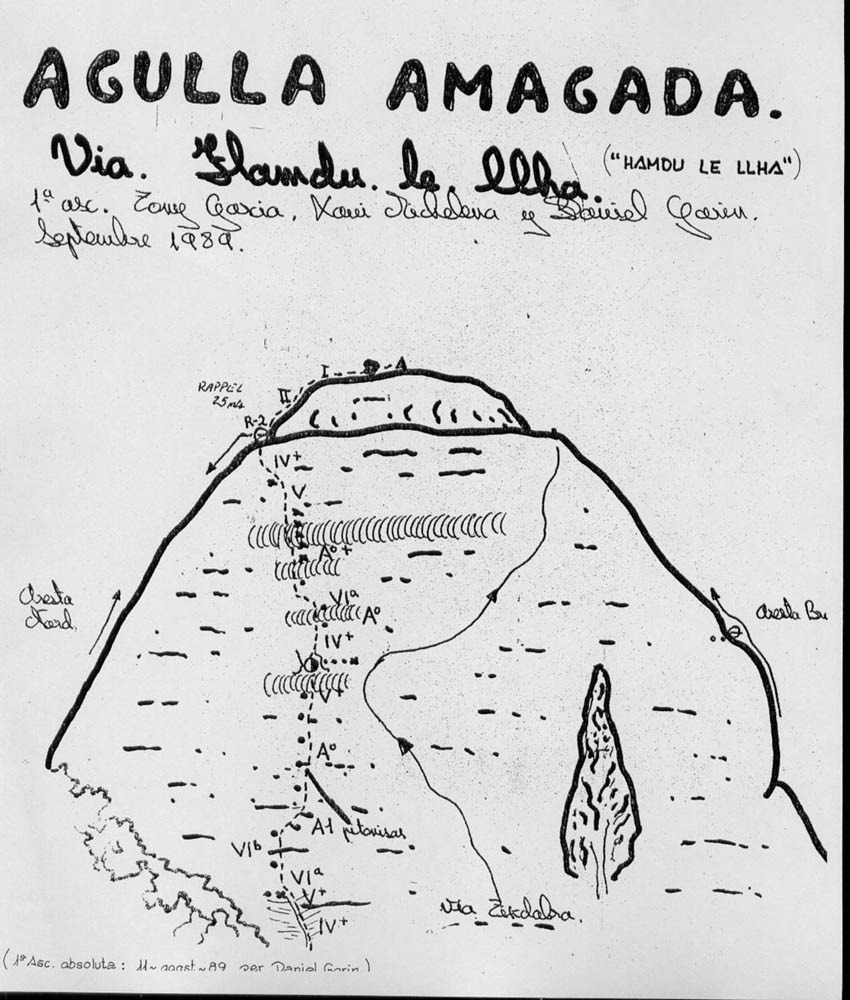 AGULLA AMAGADA.
Via. Hamdu. le. llha. ("HAMDU LE LLHA")
1ª asc. Tony Garcia, Xavi y Daniel Garin.
Septembre 1989.
I A
RAPPEL
25 mts
II
R-2
IV+
V
Aº+
VIª
Aº
IV+
V+
Aº
A1 pitonisas
VIb
VIª
V+
IV+
Aresta
Nord.
Aresta Br
Via
(1ª Asc. absoluta: 11~agost~89 per Daniel Garin)